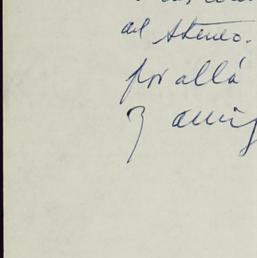 al Ateneo.
por allá
y amig